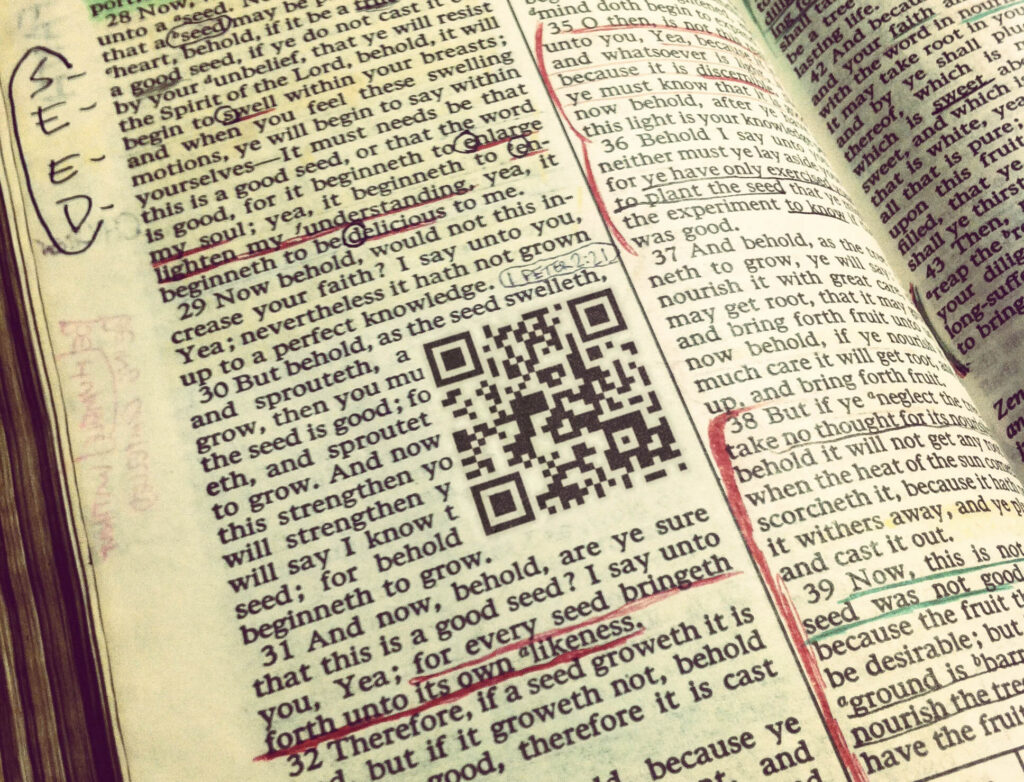 S.
E.
E.
D.
28 Now,
unto a ᵃseed. Now
that a ᵃseed may be p
ᶜheart, behold, if it be a
a good seed, if ye do not cast it
by your ᵉunbelief, that ye will resist
the Spirit of the Lord, behold, it will
begin to swell within your breasts;
and when you feel these swelling
motions, ye will begin to say within
yourselves—It must needs be that
this is a good seed, or that the word
is good, for it beginneth to enlarge
my soul; yea, it beginneth to en
lighten my ᶠunderstanding, yea, it
beginneth to be delicious to me.
29 Now behold, would not this in-
crease your faith? I say unto you,
Yea; nevertheless it hath not grown
up to a perfect knowledge.
1 PETER 2:21
30 But behold, as the seed swelleth,
and sprouteth, a
grow, then you mu
the seed is good; fo
eth, and sproutet
to grow. And now
this strengthen yo
will strengthen y
will say I know t
seed; for behold
beginneth to grow.
31 And now, behold, are ye sure
that this is a good seed? I say unto
you, Yea; for every seed bringeth
forth unto its own ᵃlikeness.
32 Therefore, if a seed groweth it is
, but if it groweth not, behold
good, therefore it is cast
because ye
and
mind doth begin to
35 O then, is not this
unto you, Yea, because
and whatsoever is
because it is discern
ye must know that it is
now behold, after
this light is your knowledge
36 Behold I say unto
neither must ye lay aside
for ye have only exercised
to plant the seed that ye
the experiment to know
was good.
37 And behold, as the tree
neth to grow, ye will say
nourish it with great care
may get root, that it may
and bring forth fruit unto
now behold, if ye nourish
much care it will get root, a
up, and bring forth fruit.
38 But if ye ᵃneglect the tree
take no thought for its nouri
behold it will not get any roo
when the heat of the sun come
scorcheth it, because it hath
it withers away, and ye pl
and cast it out.
39 Now, this is not
seed was not good
because the fruit th
be desirable; but
ᵃground is ᵇbarr
nourish the tree
have the fruit
be a tree
lasting life.
42 And because
your faith
with the word in nouri
it may take root in you
and by
thereof,
which is sweet
sweet, and which
that is white, yea
all that is pure;
upon this fruit
filled, that ye
shall ye thirst
43 Then,
ᵃreap the
your dilig
long-suff
to bring
Zen